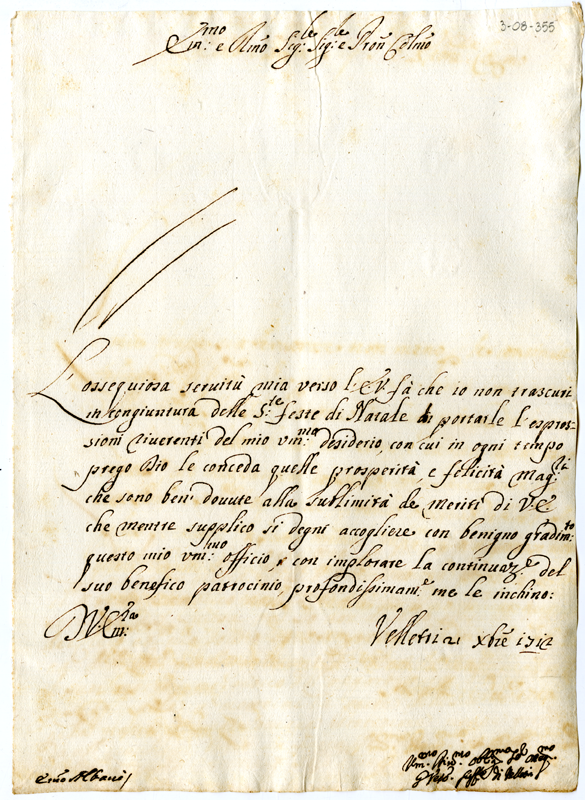 3-08-355
Em:mo e Rmo Sig:re Sig:re e Pron Colmo
L'ossequiosa seruitù mia verso l'E.V. fà che io non trascuri
in congiuntura delle S:te feste di Natale di portarle l'espres-
sioni riuerenti del mio vm:mo desiderio, con cui in ogni tempo
prego Dio le conceda quelle prosperità, e felicità mag:ri
che sono ben' douute alla sublimità de meriti di V.E
che mentre supplico si degni accogliere con benigno gradim:to
questo mio vm:mo officio, e con implorare la continuaz:e del
suo benefico patrocinio, profondissimam:e me le inchino:
D. V. Em:za Velletri 21 Xbre 1712
Emo Albani
Vm:mo